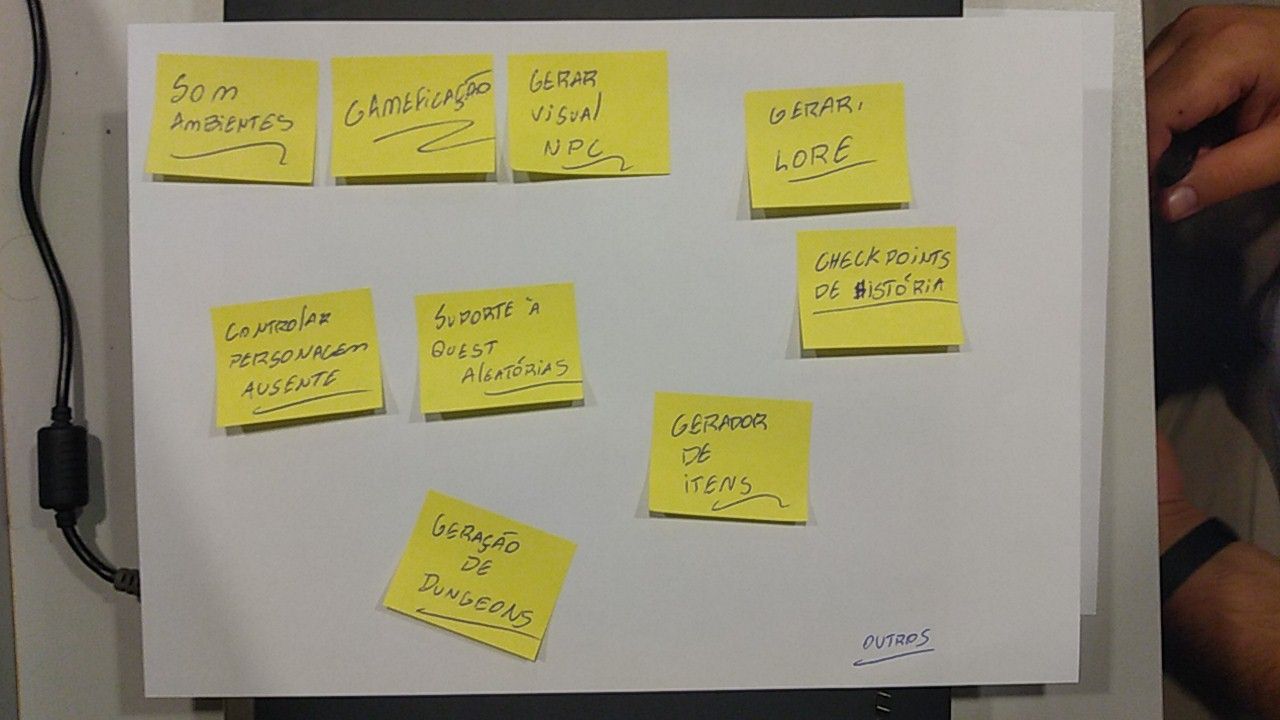 SOM
AMBIENTES
GAMEFICAÇÃO
GERAR
VISUAL
NPC
GERAR.
LORE
CHECKPOINTS
DE HISTÓRIA
CONTROLAR
PERSONAGEM
AUSENTE
SUPORTE À
QUEST
ALEATÓRIAS
GERADOR
DE
ITENS
GERAÇÃO
DE
DUNGEONS
OUTROS